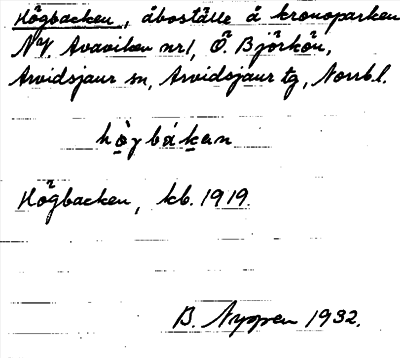 Högbacken, åboställe å kronoparken
NV. Avaviken nr 1, Ö. Björkön,
Arvidsjaur sn, Arvidsjaur tg, Norrb. l.
hò̱gbáḵen
Högbacken, kb. 1919.
B. Nyppen 1932.